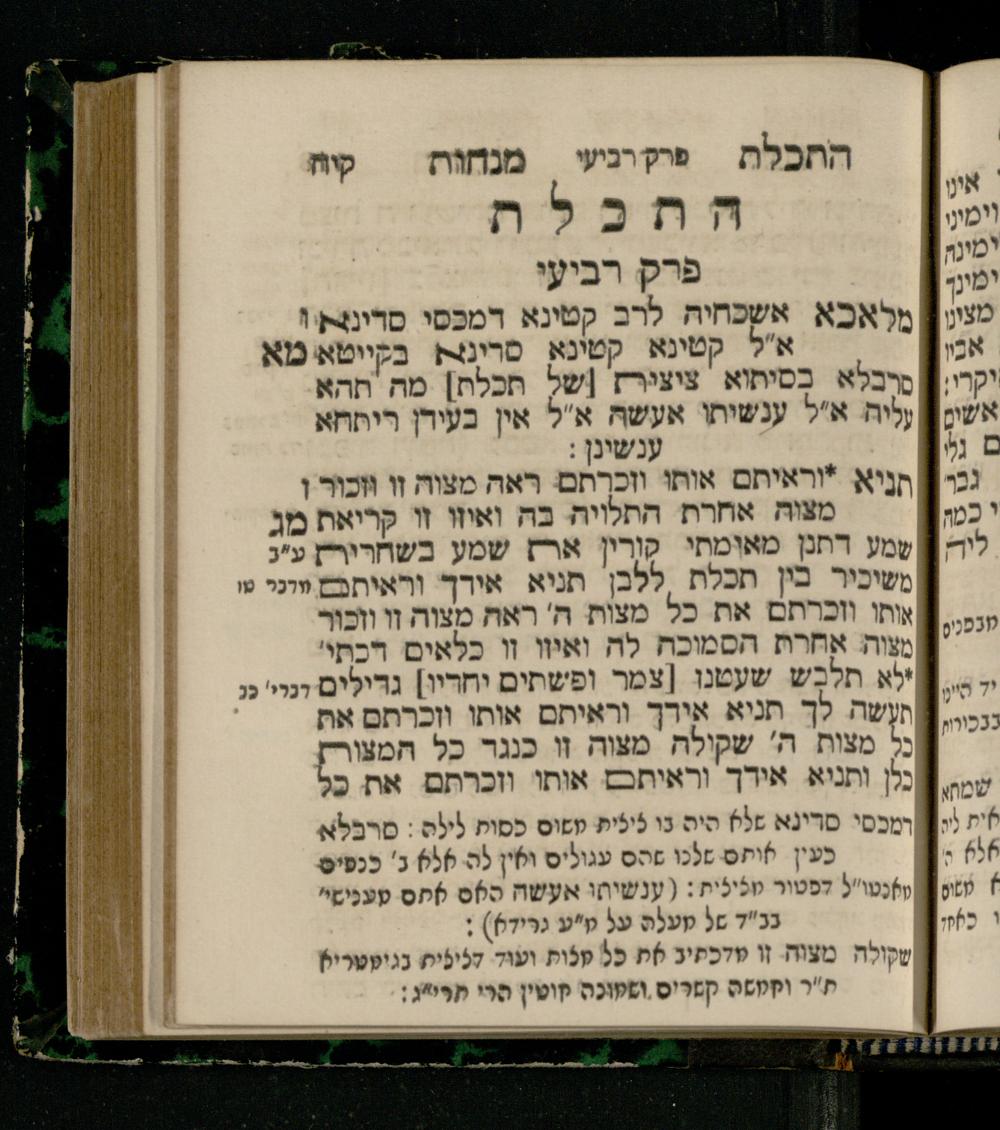 התכלת פרק רביעי מנחות קיח
התכלת
פרק רביעי
מלאכא אשכחיה לרב קטינא דמכסי סדינא ו
א״ל קטינא קטינא סדינא בקייטא מא
סרבלא בסיתוא ציצית [של תכלת] מה תהא
עליה א״ל ענשיתו אעשה א״ל אין בעידן ריתחא
ענשינן :
תניא *וראיתם אותו וזכרתם ראה מצוה זו וזכור ז
מצוה אחרת התלויה בה ואיזו זו קריאת מג
שמע דתנן מאימתי קורין את שמע בשחרית ע״ב
משיכיר בין תכלת ללבן תניא אידך וראיתם מדבר טו
אותו וזכרתם את כל מצות ה׳ ראה מצוה זו וזכור
מצוה אחרת הסמוכה לה ואיזו זו כלאים דכתי׳
*לא תלבש שעטנז [צמר ופשתים יחדיו] גדילים דברי׳ כב
תעשה לך תניא אידך וראיתם אותו וזכרתם את
כל מצות ה׳ שקולה מצוה זו כנגד כל המצות
כלן ותניא אידך וראיתם אותו וזכרתם את כל
דמכסי סדינא שלא היה בו ציצית משום כסות לילה : סרבלא
כעין אותם שלנו שהם עגולים ואין לה אלא ב׳ כנפים
מאנטו״ל דפטור מציצית : (ענשיתו אעשה האם אתם מענישי׳
בב״ד של מעלה על מ״ע גרידא) :
שקולה מצוה זו מדכתיב את כל מצות ועוד דציצית בגימטריא
ת״ר וחמשה קשרים ושמונה חוטין הרי תרי״ג :
אינו
וימיני
ימינה
ימינך
מצינו
אביו
יקרי :
אשים
ם גלי
גבר׳
י כמה
ליה
מבפנים
יד היינו
בבכירות
שמתא
אית ליה
אלא ה׳
א משום
ו כאחד